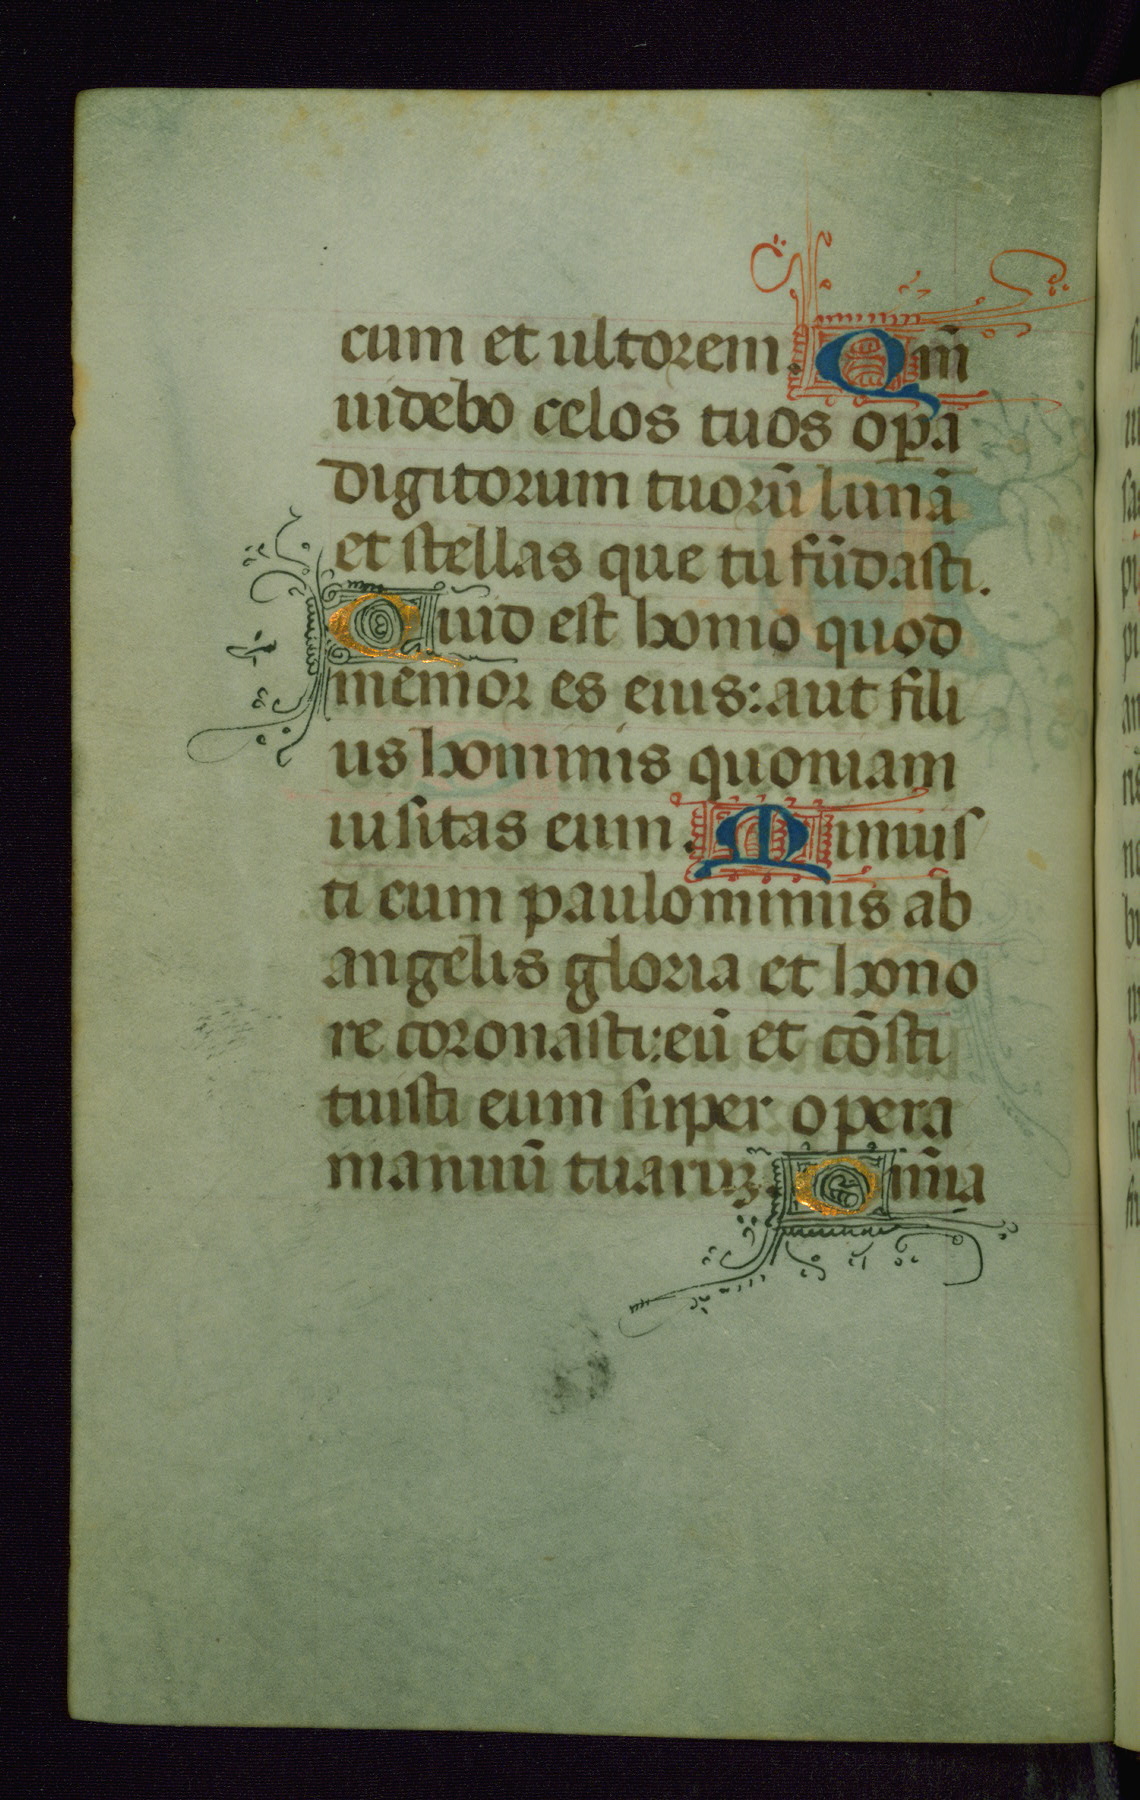 cum et ultorem. Qm̄
uidebo celos tuos opa
digitorum tuorū lunā
et stellas que tu fūdasti.
Quid est homo quod
memor es eius: aut fili
us hominis quoniam
uisitas eum. Minuis
ti eum paulominus ab
angelis gloria et hono
re coronasti: eū et cōsti
tuisti eum super opera
manuū tuarꝝ. Om̄ia